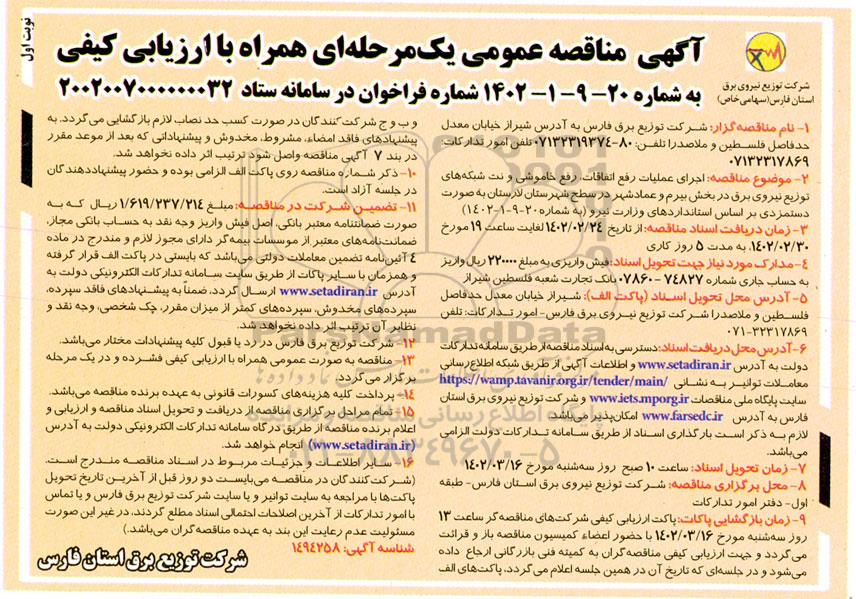 نوبت اول
آگهی مناقصه عمومی یک‌مرحله‌ای همراه با ارزیابی کیفی
به شماره ۲۰-۹-۱-۱۴۰۲ شماره فراخوان در سامانه ستاد ۲۰۰۲۰۰۷۰۰۰۰۰۰۰۳۲
شرکت توزیع نیروی برق
استان فارس(سهامی خاص)
۱- نام مناقصه‌گزار: شرکت توزیع برق فارس به آدرس شیراز خیابان معدل
حدفاصل فلسطین و ملاصدرا تلفن: ۸۰-۰۷۱۳۲۳۱۹۳۷۴ تلفن امور تدارکات:
۰۷۱۳۲۳۱۷۸۶۹
۲- موضوع مناقصه: اجرای عملیات رفع اتفاقات، رفع خاموشی و نت شبکه‌های
توزیع نیروی برق در بخش بیرم و عمادشهر در سطح شهرستان لارستان به صورت
دستمزدی بر اساس استانداردهای وزارت نیرو (به شماره ۲۰-۹-۱-۱۴۰۲)
۳- زمان دریافت اسناد مناقصه: از تاریخ ۱۴۰۲/۰۲/۲۴ لغایت ساعت ۱۹ مورخ
۱۴۰۲/۰۲/۳۰، به مدت ۵ روز کاری
۴- مدارک مورد نیاز جهت تحویل اسناد: فیش واریزی به مبلغ ۲۲۰۰۰۰ ریال واریز
به حساب جاری شماره ۷۴۸۲۷-۰۷۸۶۰ بانک تجارت شعبه فلسطین شیراز
۵- آدرس محل تحویل اسناد (پاکت الف): شیراز خیابان معدل حدفاصل
فلسطین و ملاصدرا شرکت توزیع نیروی برق فارس- امور تدارکات: تلفن
۰۷۱-۳۲۳۱۷۸۶۹
۶- آدرس محل دریافت اسناد: دسترسی به اسناد مناقصه از طریق سامانه تدارکات
دولت به آدرس www.setadiran.ir و اطلاعات آگهی از طریق شبکه اطلاع‌رسانی
معاملات توانیر به نشانی https://wamp.tavanir.org.ir/tender/main/
سایت پایگاه ملی مناقصات www.iets.mporg.ir و شرکت توزیع نیروی برق استان
فارس به آدرس www.farsedc.ir امکان‌پذیر می‌باشد
لازم به ذکر است بارگذاری اسناد از طریق سامانه تدارکات دولت الزامی
می‌باشد.
۷- زمان تحویل اسناد: ساعت ۱۰ صبح روز سه‌شنبه مورخ ۱۴۰۲/۰۳/۱۶
۸- محل برگزاری مناقصه: شرکت توزیع نیروی برق استان فارس- طبقه
اول- دفتر امور تدارکات
۹- زمان بازگشایی پاکات: پاکت ارزیابی کیفی شرکت‌های مناقصه‌گر ساعت ۱۳
روز سه‌شنبه مورخ ۱۴۰۲/۰۳/۱۶ با حضور اعضاء کمیسیون مناقصه باز و قرائت
می‌گردد و جهت ارزیابی کیفی مناقصه‌گران به کمیته فنی بازرگانی ارجاع داده
می‌شود و در جلسه‌ای که تاریخ آن در همین جلسه اعلام می‌گردد، پاکت‌های الف
و ب و ج شرکت‌کنندگان در صورت کسب حد نصاب لازم بازگشایی می‌گردد. به
پیشنهادهای فاقد امضاء، مشروط، مخدوش و پیشنهاداتی که بعد از موعد مقرر
در بند ۷ آگهی مناقصه واصل شود ترتیب اثر داده نخواهد شد.
۱۰- ذکر شماره مناقصه روی پاکت الف الزامی بوده و حضور پیشنهاددهندگان
در جلسه آزاد است.
۱۱- تضمین شرکت در مناقصه: مبلغ ۱/۶۱۹/۲۳۷/۲۱۴ ریال که به
صورت ضمانتنامه معتبر بانکی، اصل فیش واریز وجه نقد به حساب بانکی مجاز،
ضمانت‌نامه‌های معتبر از موسسات بیمه‌گر دارای مجوز لازم و مندرج در ماده
۴ آئین‌نامه تضمین معاملات دولتی می‌باشد که بایستی در پاکت الف قرار گرفته
و همزمان با سایر پاکات از طریق سایت سامانه تدارکات الکترونیکی دولت به
آدرس www.setadiran.ir ارسال گردد، ضمناً به پیشنهادهای فاقد سپرده،
سپرده‌های مخدوش، سپرده‌های کمتر از میزان مقرر، چک شخصی، وجه نقد و
نظایر آن ترتیب اثر داده نخواهد شد.
۱۲- شرکت توزیع برق فارس در رد یا قبول کلیه پیشنهادات مختار می‌باشد.
۱۳- مناقصه به صورت عمومی همراه با ارزیابی کیفی فشرده و در یک مرحله
برگزار می‌گردد.
۱۴- پرداخت کلیه هزینه‌های کسورات قانونی به عهده برنده مناقصه می‌باشد.
۱۵- تمام مراحل برگزاری مناقصه از دریافت و تحویل اسناد مناقصه و ارزیابی و
اعلام برنده مناقصه از طریق درگاه سامانه تدارکات الکترونیکی دولت به آدرس
(www.setadiran.ir) انجام خواهد شد.
۱۶- سایر اطلاعات و جزئیات مربوط در اسناد مناقصه مندرج است.
(شرکت‌کنندگان در مناقصه می‌بایست دو روز قبل از آخرین تاریخ تحویل
پاکت‌ها با مراجعه به سایت توانیر و یا سایت شرکت توزیع برق فارس و یا تماس
با امور تدارکات از آخرین اصلاحات احتمالی اسناد مطلع گردند، در غیر این صورت
مسئولیت عدم رعایت این بند به عهده مناقصه‌گران می‌باشد.)
شناسه آگهی: ۱۴۹۴۲۵۸
شرکت توزیع برق استان فارس